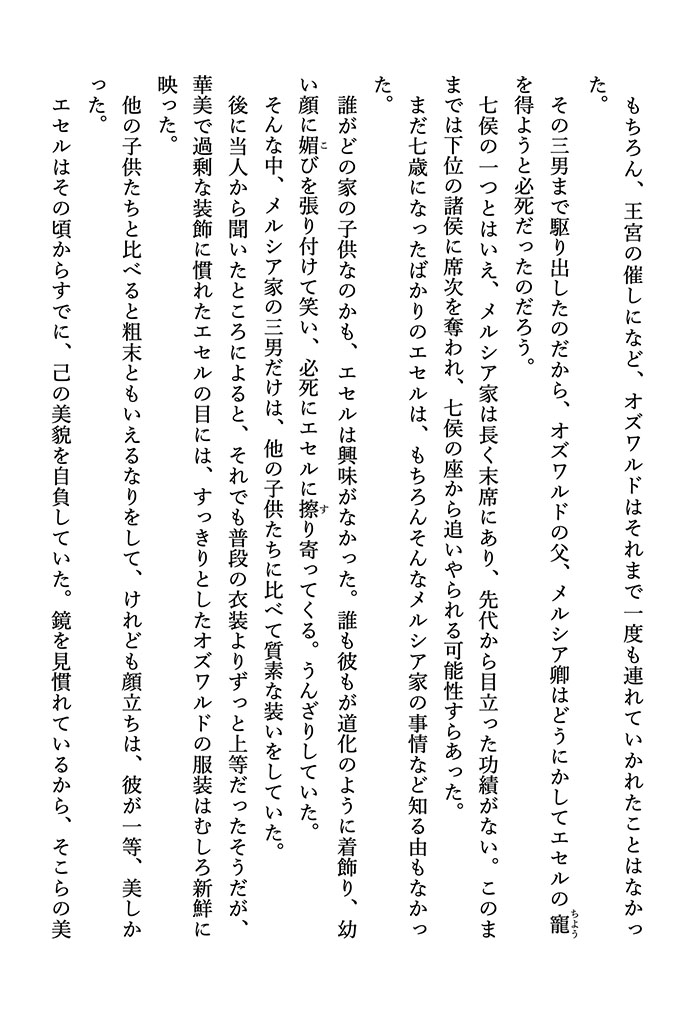 もちろん、王宮の催しになど、オズワルドはそれまで一度も連れていかれたことはなかっ
た。
　その三男まで駆り出したのだから、オズワルドの父、メルシア卿はどうにかしてエセルの寵
を得ようと必死だったのだろう。
　七侯の一つとはいえ、メルシア家は長く末席にあり、先代から目立った功績がない。このま
までは下位の諸侯に席次を奪われ、七侯の座から追いやられる可能性すらあった。
　まだ七歳になったばかりのエセルは、もちろんそんなメルシア家の事情など知る由もなかっ
た。
　誰がどの家の子供なのかも、エセルは興味がなかった。誰も彼もが道化のように着飾り、幼
い顔に媚びを張り付けて笑い、必死にエセルに擦り寄ってくる。うんざりしていた。
　そんな中、メルシア家の三男だけは、他の子供たちに比べて質素な装いをしていた。
　後に当人から聞いたところによると、それでも普段の衣装よりずっと上等だったそうだが、
華美で過剰な装飾に慣れたエセルの目には、すっきりとしたオズワルドの服装はむしろ新鮮に
映った。
　他の子供たちと比べると粗末ともいえるなりをして、けれども顔立ちは、彼が一等、美しか
った。
　エセルはその頃からすでに、己の美貌を自負していた。鏡を見慣れているから、そこらの美